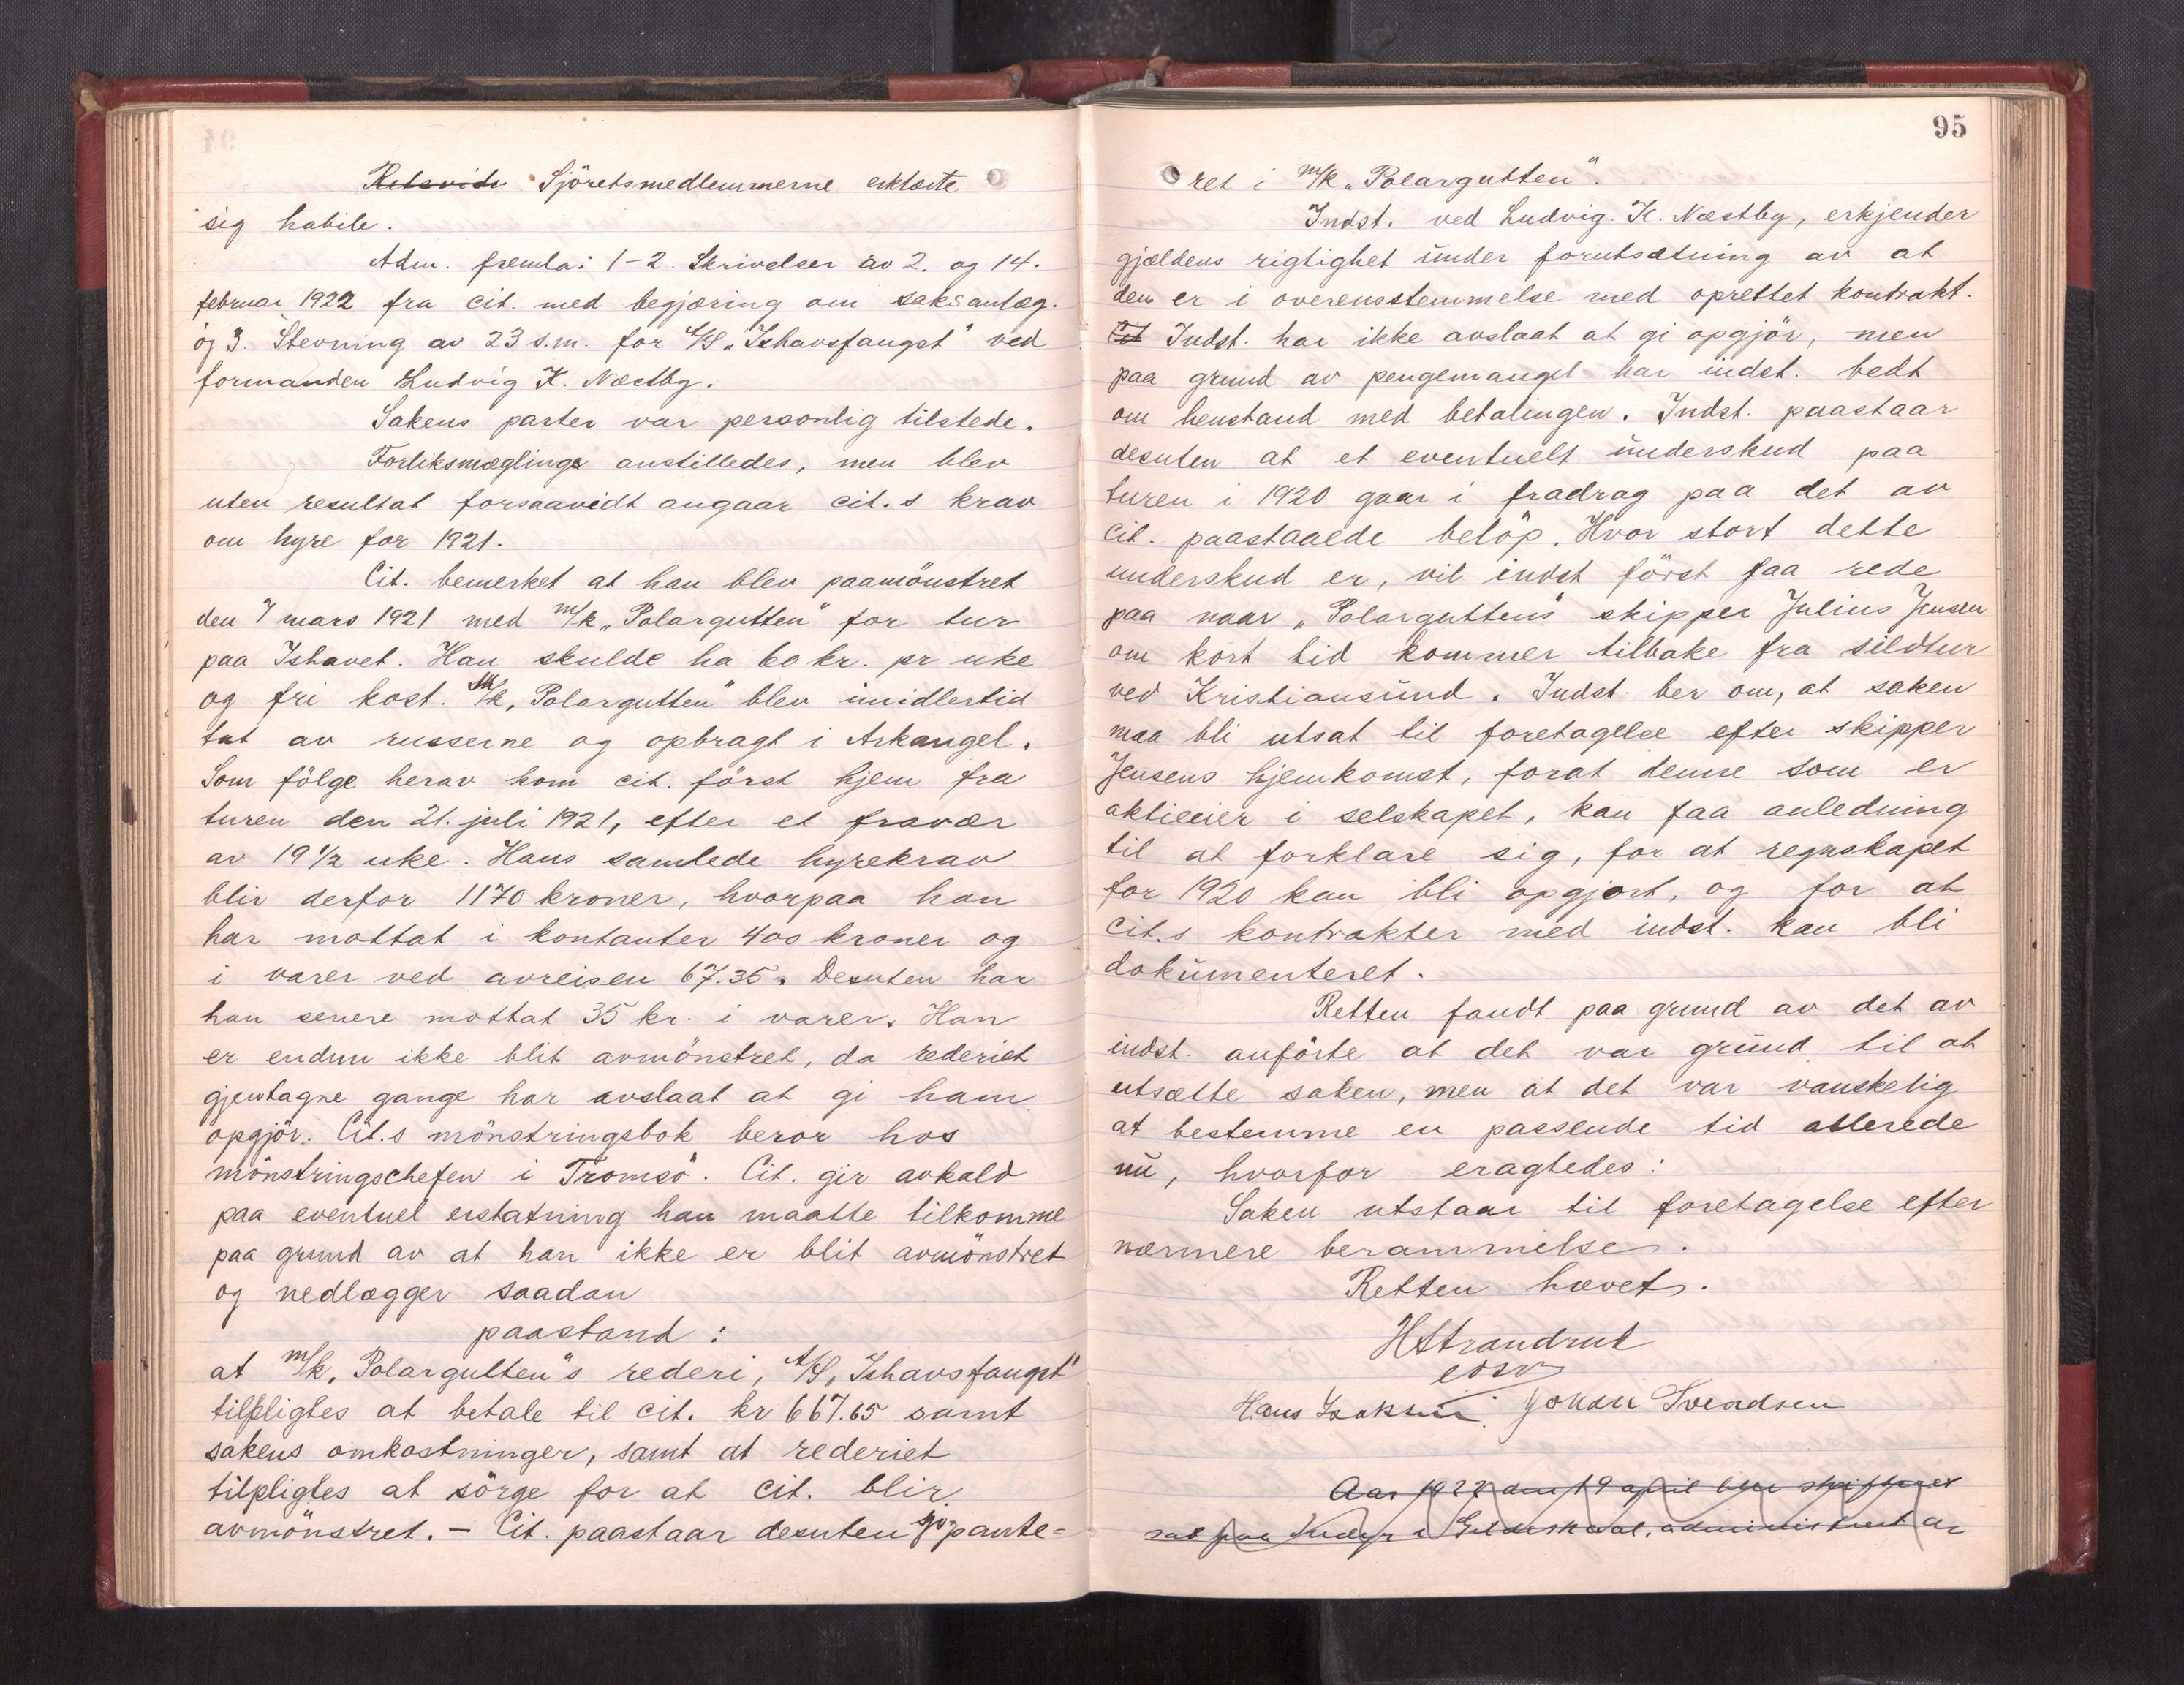 Retsvidn Sjöretsmedlemmerne erklærte
sig habile.
Adm. fremla: 1-2. Skrivelser av 2. og 14.
februar 1922 fra cit. med begjæring om saksanlæg.
og 3. Stevning av 23 s.m. for A/S „Ishavsfangst" ved
formanden Ludvig K. Næstby.
Sakens parter var personlig tilstede.
Forliksmægling anstilledes, men blev
uten resultat forsaavidt angaar cit.s krav
om hyre for 1921.
Cit. bemerket at han blev paamönstret
den 7 mars 1921 med m/k „Polargutten" for tur
paa Ishavet. Han skulde ha 60 kr. pr uke
og fri kost. M/k „Polargutten" blev imidlertid
tat av russerne og opbragt i Arkangel.
Som fölge herav kom cit. först hjem fra
turen den 21. juli 1921, efter et fravær
av 19 1/2 uke. Hans samlede hyrekrav
blir derfor 1170 kroner, hvorpaa han
har mottat i kontanter 400 kroner og
i varer ved avreisen 67.35. Desuten har
han senere mottat 35 kr. i varer. Han
er endnu ikke blit avmönstret, da rederiet
gjentagne gange har avslaat at gi ham
opgjör. Cit.s mönstringsbok beror hos
mönstringschefen i Tromsö. Cit. gir avkald
paa eventuel erstatning han maatte tilkomme
paa grund av at han ikke er blit avmönstret
og nedlægger saadan
paastand:
at m/k „Polargutten"s rederi, A/S „Ishavsfangst"
tilpligtes at betale til cit. kr 667.65 samt
sakens omkostninger, samt at rederiet
tilpligtes at sörge for at cit. blir
avmönstret. - Cit. paastaar desuten sjöpante=
95
ret i m/k „Polargutten".
Indst. ved Ludvig K. Næstby, erkjender
gjældens rigtighet under forutsætning av at
den er i overensstemmelse med oprettet kontrakt.
Cit Indst. har ikke avslaat at gi opgjör, men
paa grund av pengemangel har indst. bedt
om henstand med betalingen. Indst. paastaar
desuten at et eventuelt underskud paa
turen i 1920 gaar i fradrag paa det av
cit. paastaaede belöp. Hvor stort dette
underskud er, vil indst först faa rede
paa naar „Polarguttens" skipper Julius Jensen
om kort tid kommer tilbake fra sildtur
ved Kristiansund. Indst. ber om, at saken
maa bli utsat til foretagelse efter skipper
Jensens hjemkomst, forat denne som er
aktieeier i selskapet, kan faa anledning
til at forklare sig, for at regnskapet
for 1920 kan bli opgjort, og for at
cit.s kontrakter med indst. kan bli
dokumenteret.
Retten fandt paa grund av det av
indst. anförte at det var grund til at
utsætte saken, men at det var vanskelig
at bestemme en passende tid allerede
nu, hvorfor eragtedes:
Saken utstaar til foretagelse efter
nærmere berammelse.
Retten hævet.
HStrandrud
edsv
Hans Isaksen. Johan Svendsen
Aar 1922 den 19 april blev skifteret
sat paa Inndyr i Gildeskaal, administrert av